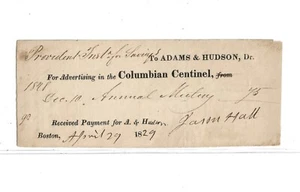 Provident Inst. for Savings To ADAMS & HUDSON, Dr.
For Advertising in the Columbian Centinel, from
1828
Dec. 10 Annual Meeting 75
Received Payment for A. & Hudson,
Boston, April 29 1829